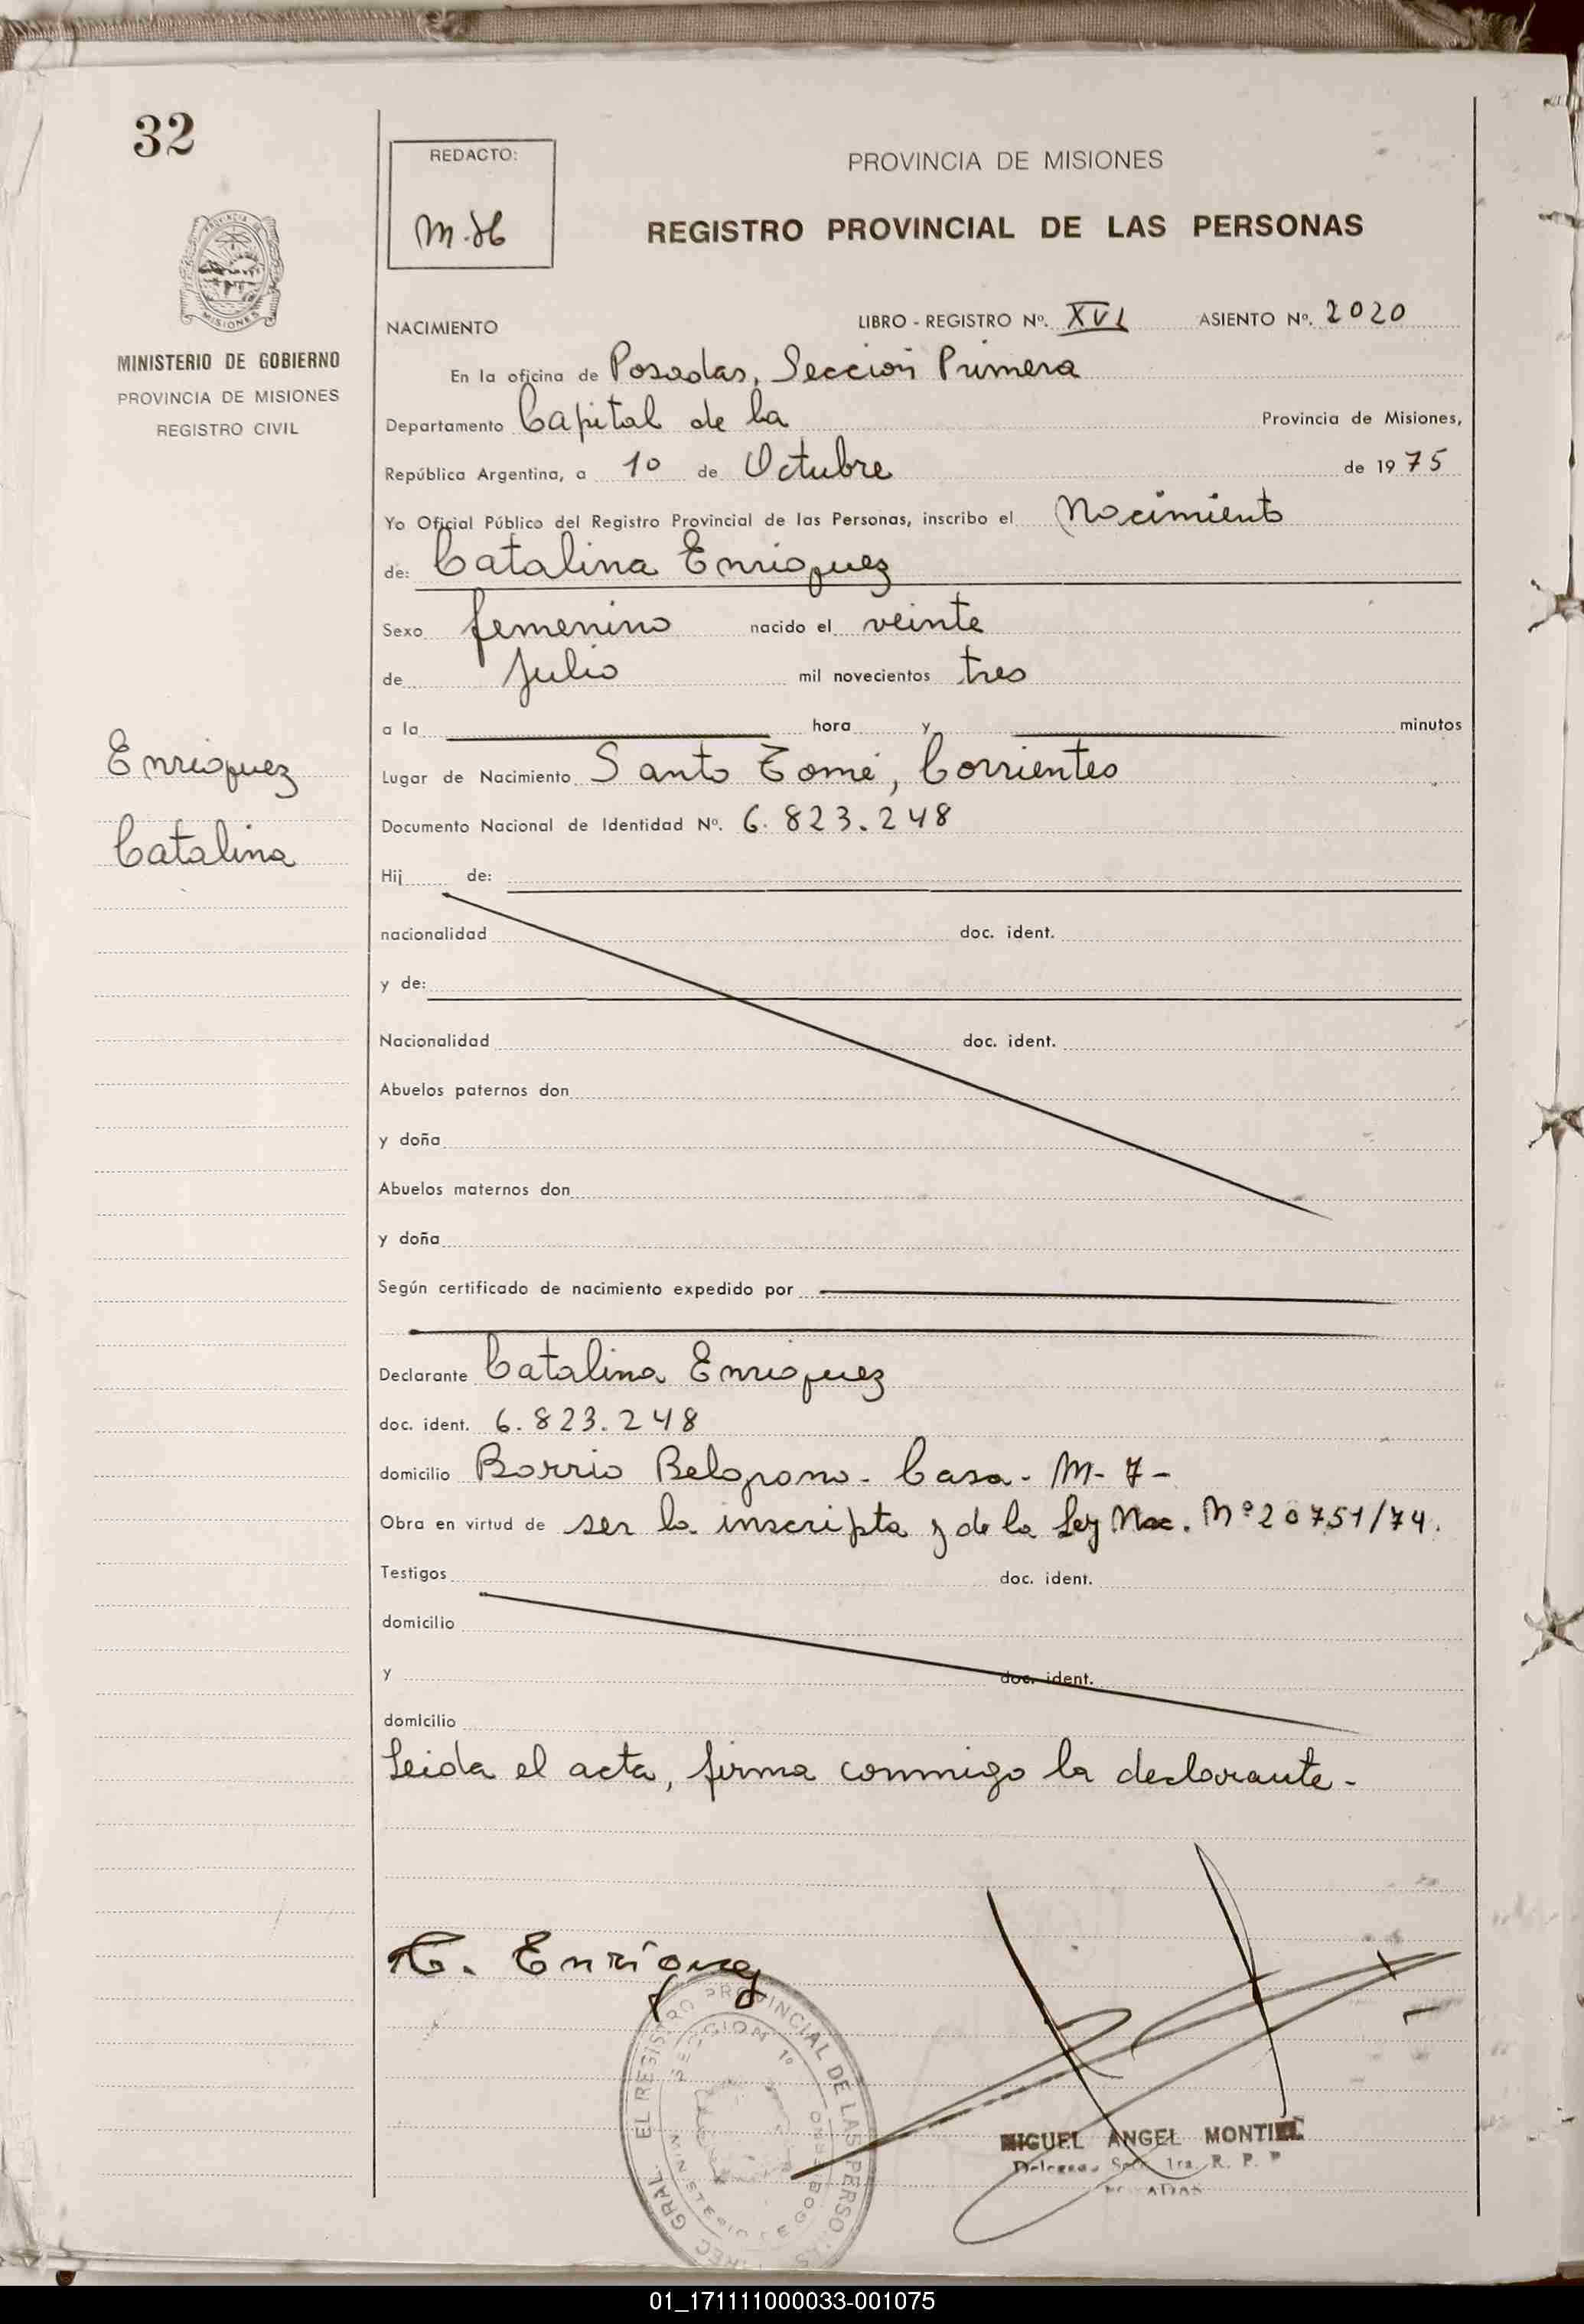 32
REDACTO:
M.H
PROVINCIA DE MISIONES
REGISTRO PROVINCIAL DE LAS PERSONAS
MISIONES
MINISTERIO DE GOBIERNO
PROVINCIA DE MISIONES
REGISTRO CIVIL
NACIMIENTO LIBRO - REGISTRO Nº. XVI ASIENTO Nº. 2020
En la oficina de Posadas, Sección Primera
Departamento Capital de la Provincia de Misiones,
República Argentina, a 10 de Octubre de 1975
Yo Oficial Público del Registro Provincial de las Personas, inscribo el Nacimiento
de: Catalina Enriquez
Sexo femenino nacido el veinte
de Julio mil novecientos tres
a la hora y minutos
Enriquez
Catalina
Lugar de Nacimiento Santo Tomé, Corrientes
Documento Nacional de Identidad Nº. 6.823.248
Hij de:
nacionalidad doc. ident.
y de:
Nacionalidad doc. ident.
Abuelos paternos don
y doña
Abuelos maternos don
y doña
Según certificado de nacimiento expedido por
Declarante Catalina Enriquez
doc. ident. 6.823.248
domicilio Barrio Belgrano - Casa - M - 7 -
Obra en virtud de ser la inscripta y de la Ley Nac. Nº 20751/74.
Testigos doc. ident.
domicilio
y doc. ident.
domicilio
Leida el acta, firma conmigo la declarante -
C. Enriquez
EL REGISTRO PROVINCIAL DE LAS PERSONAS
SECCION 1º
MINISTERIO DE GOBIERNO
GRAL.
MIGUEL ANGEL MONTIEL
1ra. R. P. P
01_171111000033-001075